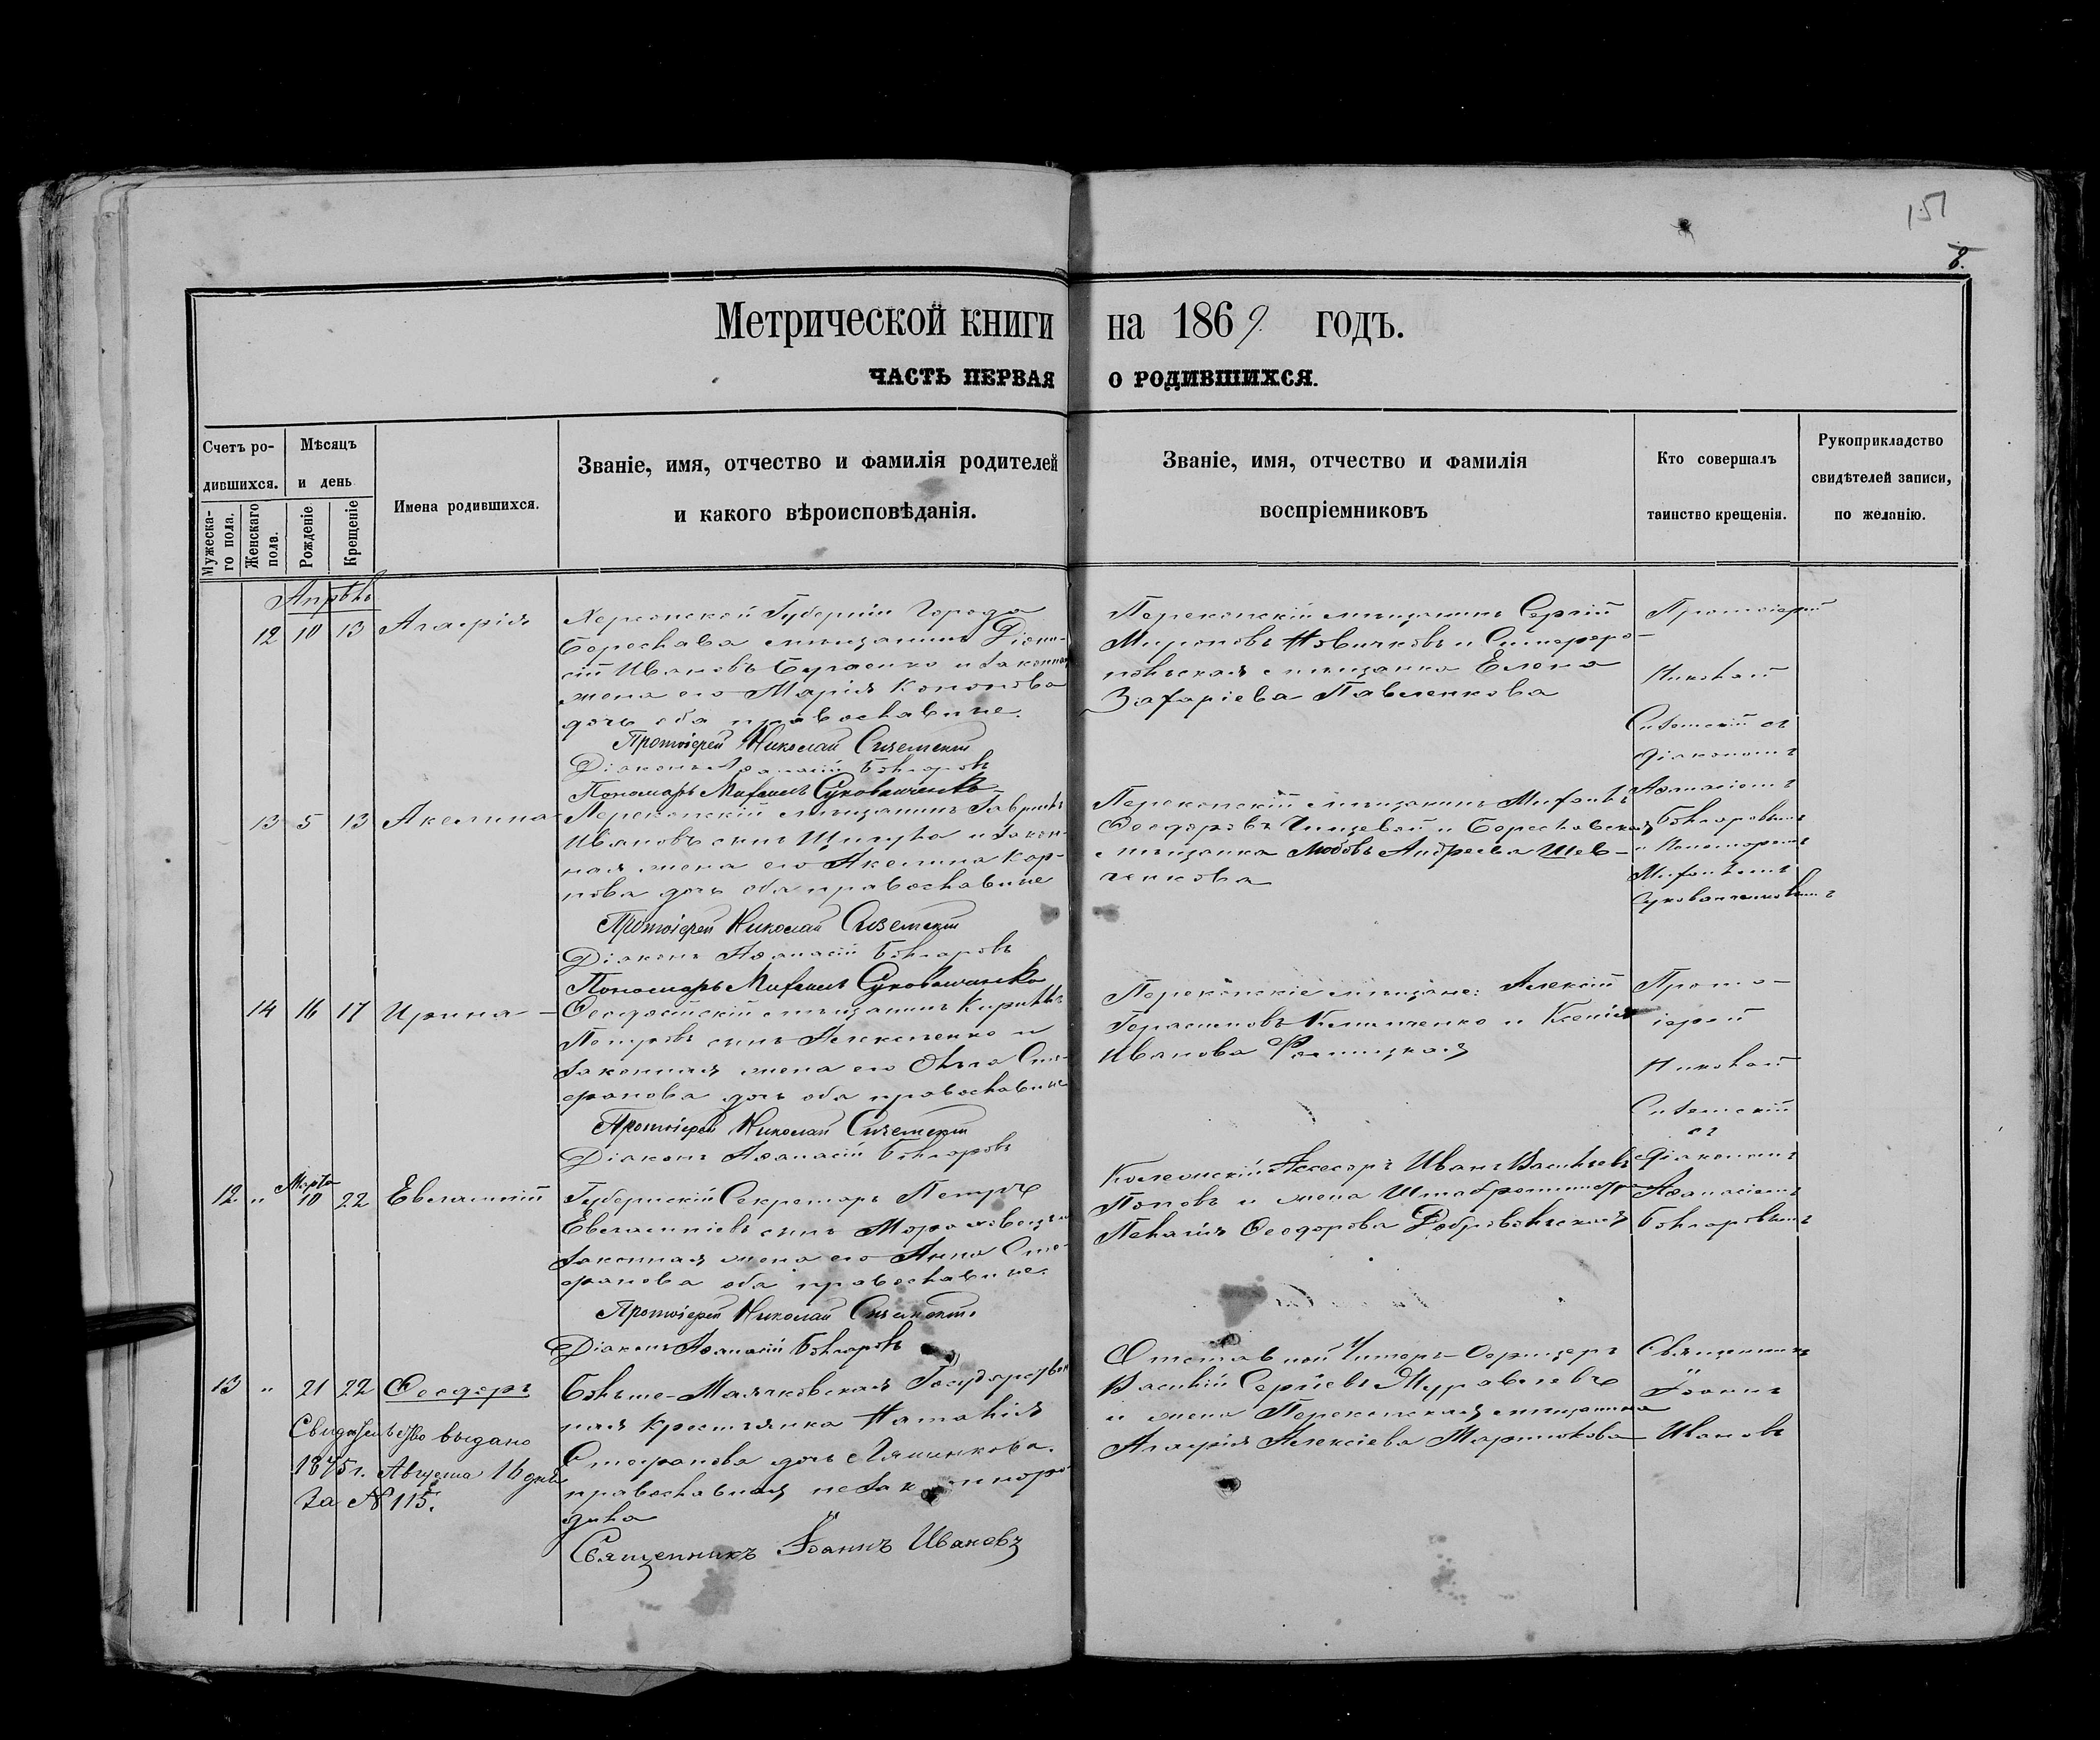 151
8.
Метрической книги на 1869 годъ.
ЧАСТЬ ПЕРВАЯ О РОДИВШИХСЯ.
Счетъ ро-
дившихся.
Мужеска-
го пола.
Женскаго
пола.
Мѣсяцъ
и день
Рожденіе
Крещеніе
Имена родившихся.
Званіе, имя, отчество и фамилія родителей
и какого вѣроисповѣданія.
Званіе, имя, отчество и фамилія
воспріемниковъ
Кто совершалъ
таинство крещенія.
Рукоприкладство
свидѣтелей записи,
по желанію.
Апрѣль
12 10 13 Агафрія
Херсонской Губерніи Города
Бореслава мѣщанинъ Діони-
сій Ивановъ и законная
жена его Марія Кононова
дочь оба православные.
Протоіерей Николай Сиземскій
Діаконъ Афанасій Болгаровъ
Пономарь Михаилъ Суковаченко
Перекопскій мѣщанинъ Сергій
Мироновъ Новичковъ и Симферо-
польская мѣщанка Елена
Захаріева Павленкова
Протоіерей
Николай
Сиземскій съ
Діакономъ
Афанасіемъ
Болгаровымъ
и Пономаремъ
Михаиломъ
Суковаченковымъ
13 5 13 Акелина
Перекопскій мѣщанинъ Гавріилъ
Ивановъ сынъ и закон-
ная жена его Акелина Кар-
пова дочь оба православные
Протоіерей Николай Сиземскій
Діаконъ Афанасій Болгаровъ
Пономарь Михаилъ Суковаченко
Перекопскій мѣщанинъ Михаилъ
Феодоровъ и Бореславская
мѣщанка Любовь Андреева Шев-
ченкова
14 16 17 Ирина
Феодосійскій мѣщанинъ Кириллъ
Петровъ сынъ Алексеенко и
законная жена его Ольга Сте-
фанова дочь оба православные
Протоіерей Николай Сиземскій
Діаконъ Афанасій Болгаровъ
Перекопскіе мѣщане: Алексій
Герасимовъ и Ксенія
Иванова
Прото-
іерей
Николай
Сиземскій
съ
Діакономъ
Афанасіемъ
Болгаровымъ
Марта
12 " 10 22 Евгамній
Губернскій Секретарь Петръ
Евгампіевъ сынъ
законная жена его Анна Сте-
фанова оба православные.
Протоіерей Николай Сиземскій.
Діаконъ Афанасій Болгаровъ
Колежскій Ассесоръ Иванъ Васильевъ
Поповъ и жена
Пелагія Феодорова Добровольская
13 " 21 22 Феодоръ
Свидѣтельство выдано
1875 г. Августа 16 дня
за № 115.
Больше-Маячковская Государствен
ная крестьянка Наталія
Стефанова дочь Лячинкова.
православная незаконноро-
дила
Священникъ Іоаннъ Ивановъ
Отставной Унтеръ-Офицеръ
Василій Сергіевъ Муравлевъ
и жена Перекопская мѣщанка
Агафрія Алексіева Мартикова
Священникъ
Іоаннъ
Ивановъ